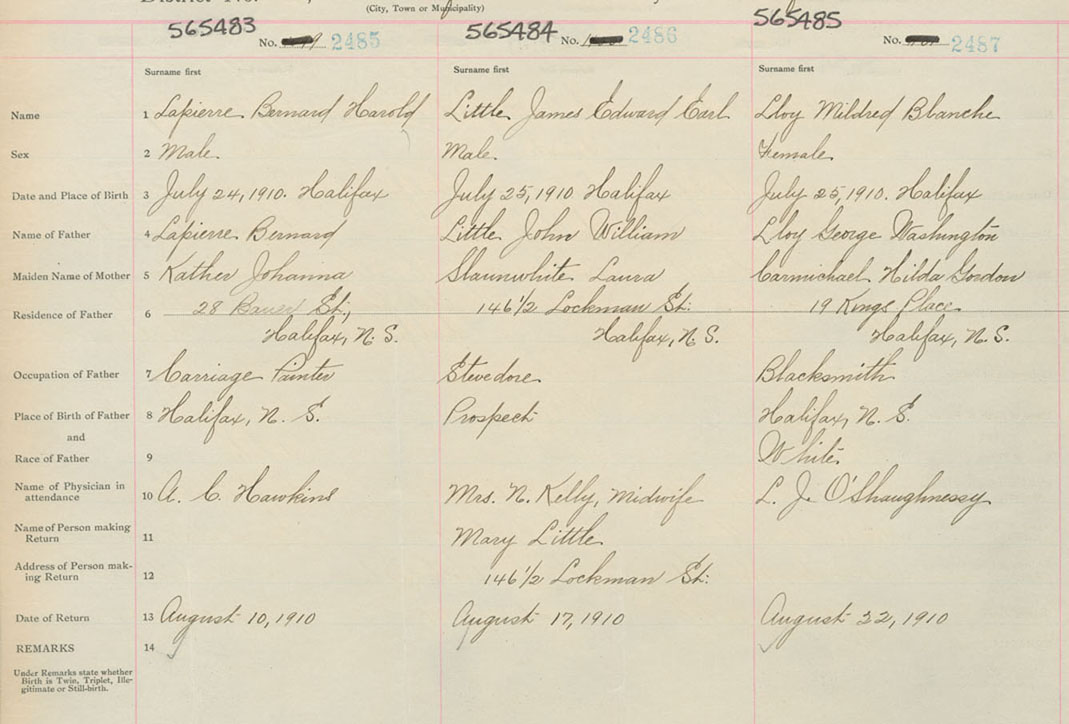 (City, Town or Municipality)
565483 No. 2485 565484 No. 2486 565485 No. 2487
Surname first Surname first Surname first
Name 1 Lapierre Bernard Harold Little James Edward Earl Lloy Mildred Blanche
Sex 2 Male. Male. Female.
Date and Place of Birth 3 July 24, 1910. Halifax July 25, 1910 Halifax July 25, 1910. Halifax
Name of Father 4 Lapierre Bernard Little John William Lloy George Washington
Maiden Name of Mother 5 Johanna Slaunwhite Laura Carmichael Hilda Gordon
Residence of Father 6 28 Bauer St., 146 1/2 Lockman St. 19 Kings Place
Halifax, N.S. Halifax, N.S. Halifax, N.S.
Occupation of Father 7 Carriage Painter Stevedore Blacksmith
Place of Birth of Father 8 Halifax, N. S. Prospect Halifax, N. S.
and
Race of Father 9 White
Name of Physician in
attendance 10 A. C. Hawkins Mrs. N. Kelly, Midwife L. J. O'Shaughnessy
Name of Person making
Return 11 Mary Little
Address of Person mak-
ing Return 12 146 1/2 Lockman St.
Date of Return 13 August 10, 1910 August 17, 1910 August 22, 1910
REMARKS 14
Under Remarks state whether
Birth is Twin, Triplet, Ille-
gitimate or Still-birth.